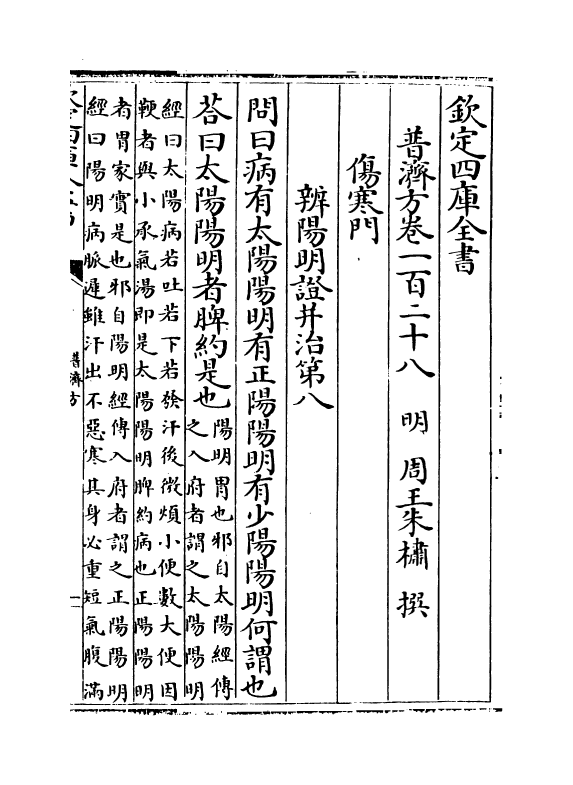 欽定四庫全書
普濟方卷一百二十八　明　周王朱橚　撰
傷寒門
辨陽明證并治第八
問曰病有太陽陽明有正陽陽明有少陽陽明何謂也
荅曰太陽陽明者脾約是也陽明胃也邪自太陽經傳
之入府者謂之太陽陽明
經曰太陽病若吐若下若發汗後微煩小便數大便因
鞕者與小承氣湯即是太陽陽明脾約病也正陽陽明
者胃家實是也邪自陽明經傳入府者謂之正陽陽明
經曰陽明病脈遲雖汗出不惡寒其身必重短氣腹滿
普濟方
一